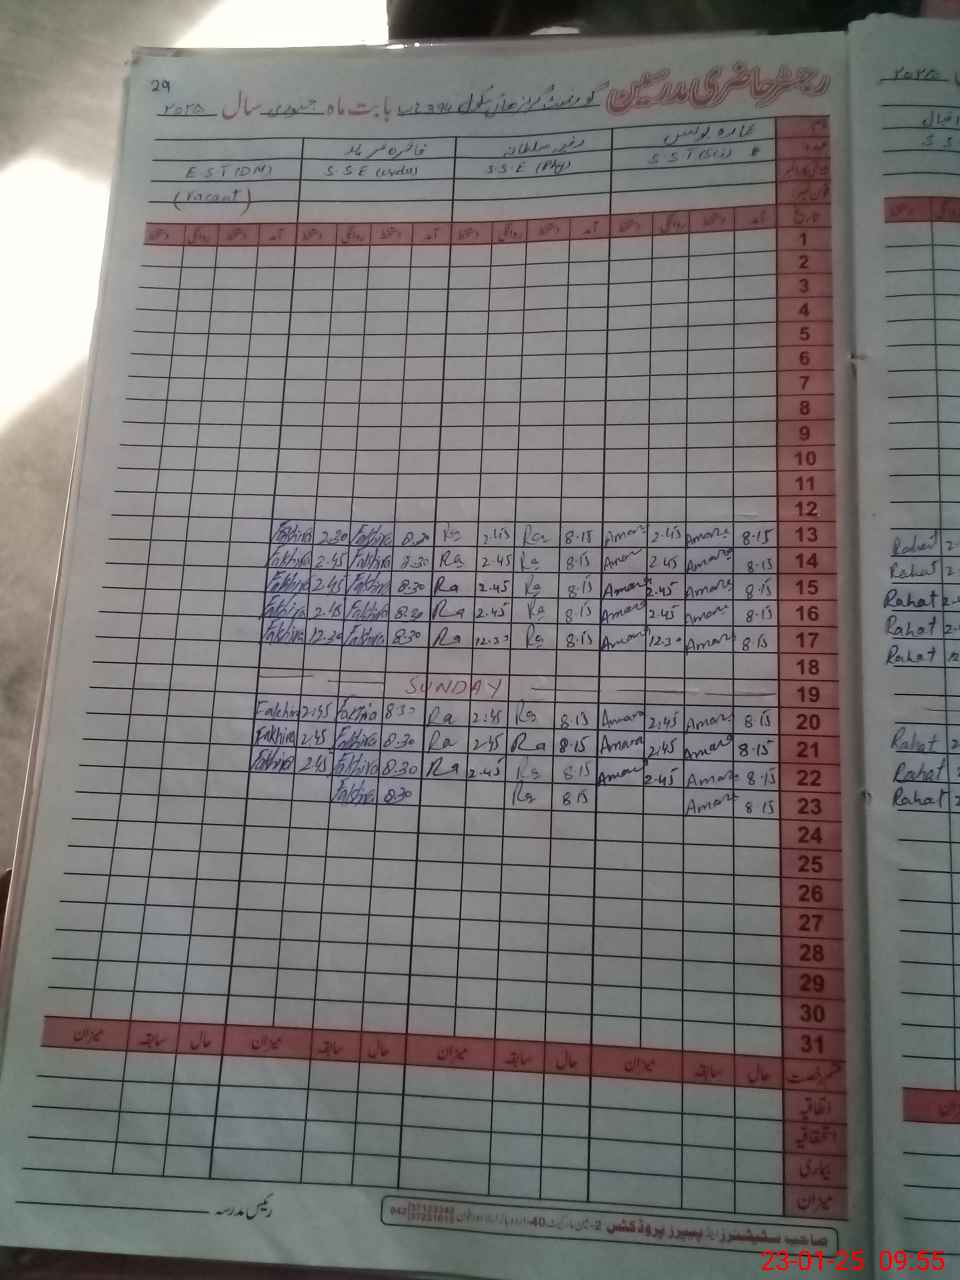 29
رجسٹر حاضری مدرسین گورنمنٹ گرلز ہائی سکول بابت ماہ جنوری سال ۲۰۲۵
S.S.T (Sci) S.S.E (Phy) S.S.E (Urdu) E.S.T (DM)
(Vacant)
تاریخ آمد دستخط روانگی دستخط آمد دستخط روانگی دستخط آمد دستخط روانگی دستخط آمد دستخط روانگی دستخط
1
2
3
4
5
6
7
8
9
10
11
12
Fakhira 2.30 Fakhira 8.30 Ra 2.45 Ra 8.15 Amara 2.45 Amara 8.15 13
Fakhira 2.45 Fakhira 8.30 Ra 2.45 Ra 8.15 Amara 2.45 Amara 8.15 14
Fakhira 2.45 Fakhira 8.30 Ra 2.45 Ra 8.15 Amara 2.45 Amara 8.15 15
Fakhira 2.45 Fakhira 8.30 Ra 2.45 Ra 8.15 Amara 2.45 Amara 8.15 16
Fakhira 12.30 Fakhira 8.30 Ra 12.30 Ra 8.15 Amara 12.30 Amara 8.15 17
18
SUNDAY 19
Fakhira 2.45 Fakhira 8.30 Ra 2.45 Ra 8.15 Amara 2.45 Amara 8.15 20
Fakhira 2.45 Fakhira 8.30 Ra 2.45 Ra 8.15 Amara 2.45 Amara 8.15 21
Fakhira 2.45 Fakhira 8.30 Ra 2.45 Ra 8.15 Amara 2.45 Amara 8.15 22
Fakhira 8.30 Ra 8.15 Amara 8.15 23
24
25
26
27
28
29
30
31
حال سابقہ میزان حال سابقہ میزان حال سابقہ میزان حال سابقہ میزان
اتفاقیہ
استحقاقیہ
بیماری
میزان
رئیس مدرسہ
صاحب سٹیشنرز اینڈ پیپرز پروڈکٹس
042 37123342 37231015
۲۰۲۵
Rahat
Rahat
Rahat
Rahat
Rahat
Rahat
Rahat
Rahat
23-01-25 09:55